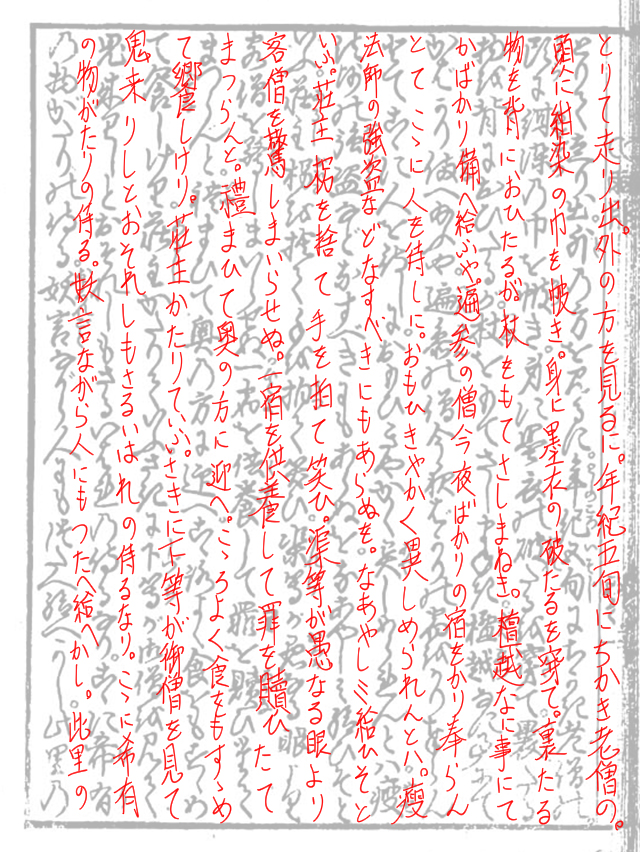 とりて走り出。外の方を見るに。年紀五旬にちかき老僧の。
頭に紺染の巾を帔き。身に墨衣の破たるを穿て。裹たる
物を背におひたるが。杖をもてさしまねき。檀越なに事にて
かばかり備へ給ふや。遍参の僧今夜ばかりの宿をかり奉らん
とてこゝに人を待しに。おもひきやかく異しめられんとハ。瘦
法師の強盗などなすべきにもあらぬを。なあやしミ給ひそと
いふ。荘主拐を捨て手を拍て笑ひ。渠等が愚なる眼より
客僧を驚しまいらせぬ。一宿を供養して罪を贖ひたて
まつらんと。禮まひて奥の方に迎へ。こゝろよく食をもすゝめ
て饗しけり。荘主かたりていふ。さきに下等が御僧を見て
鬼来りしとおそれしもさるいはれの侍るなり。こゝに希有
の物がたりの侍る。妖言ながら人にもつたへ給へかし。此里の